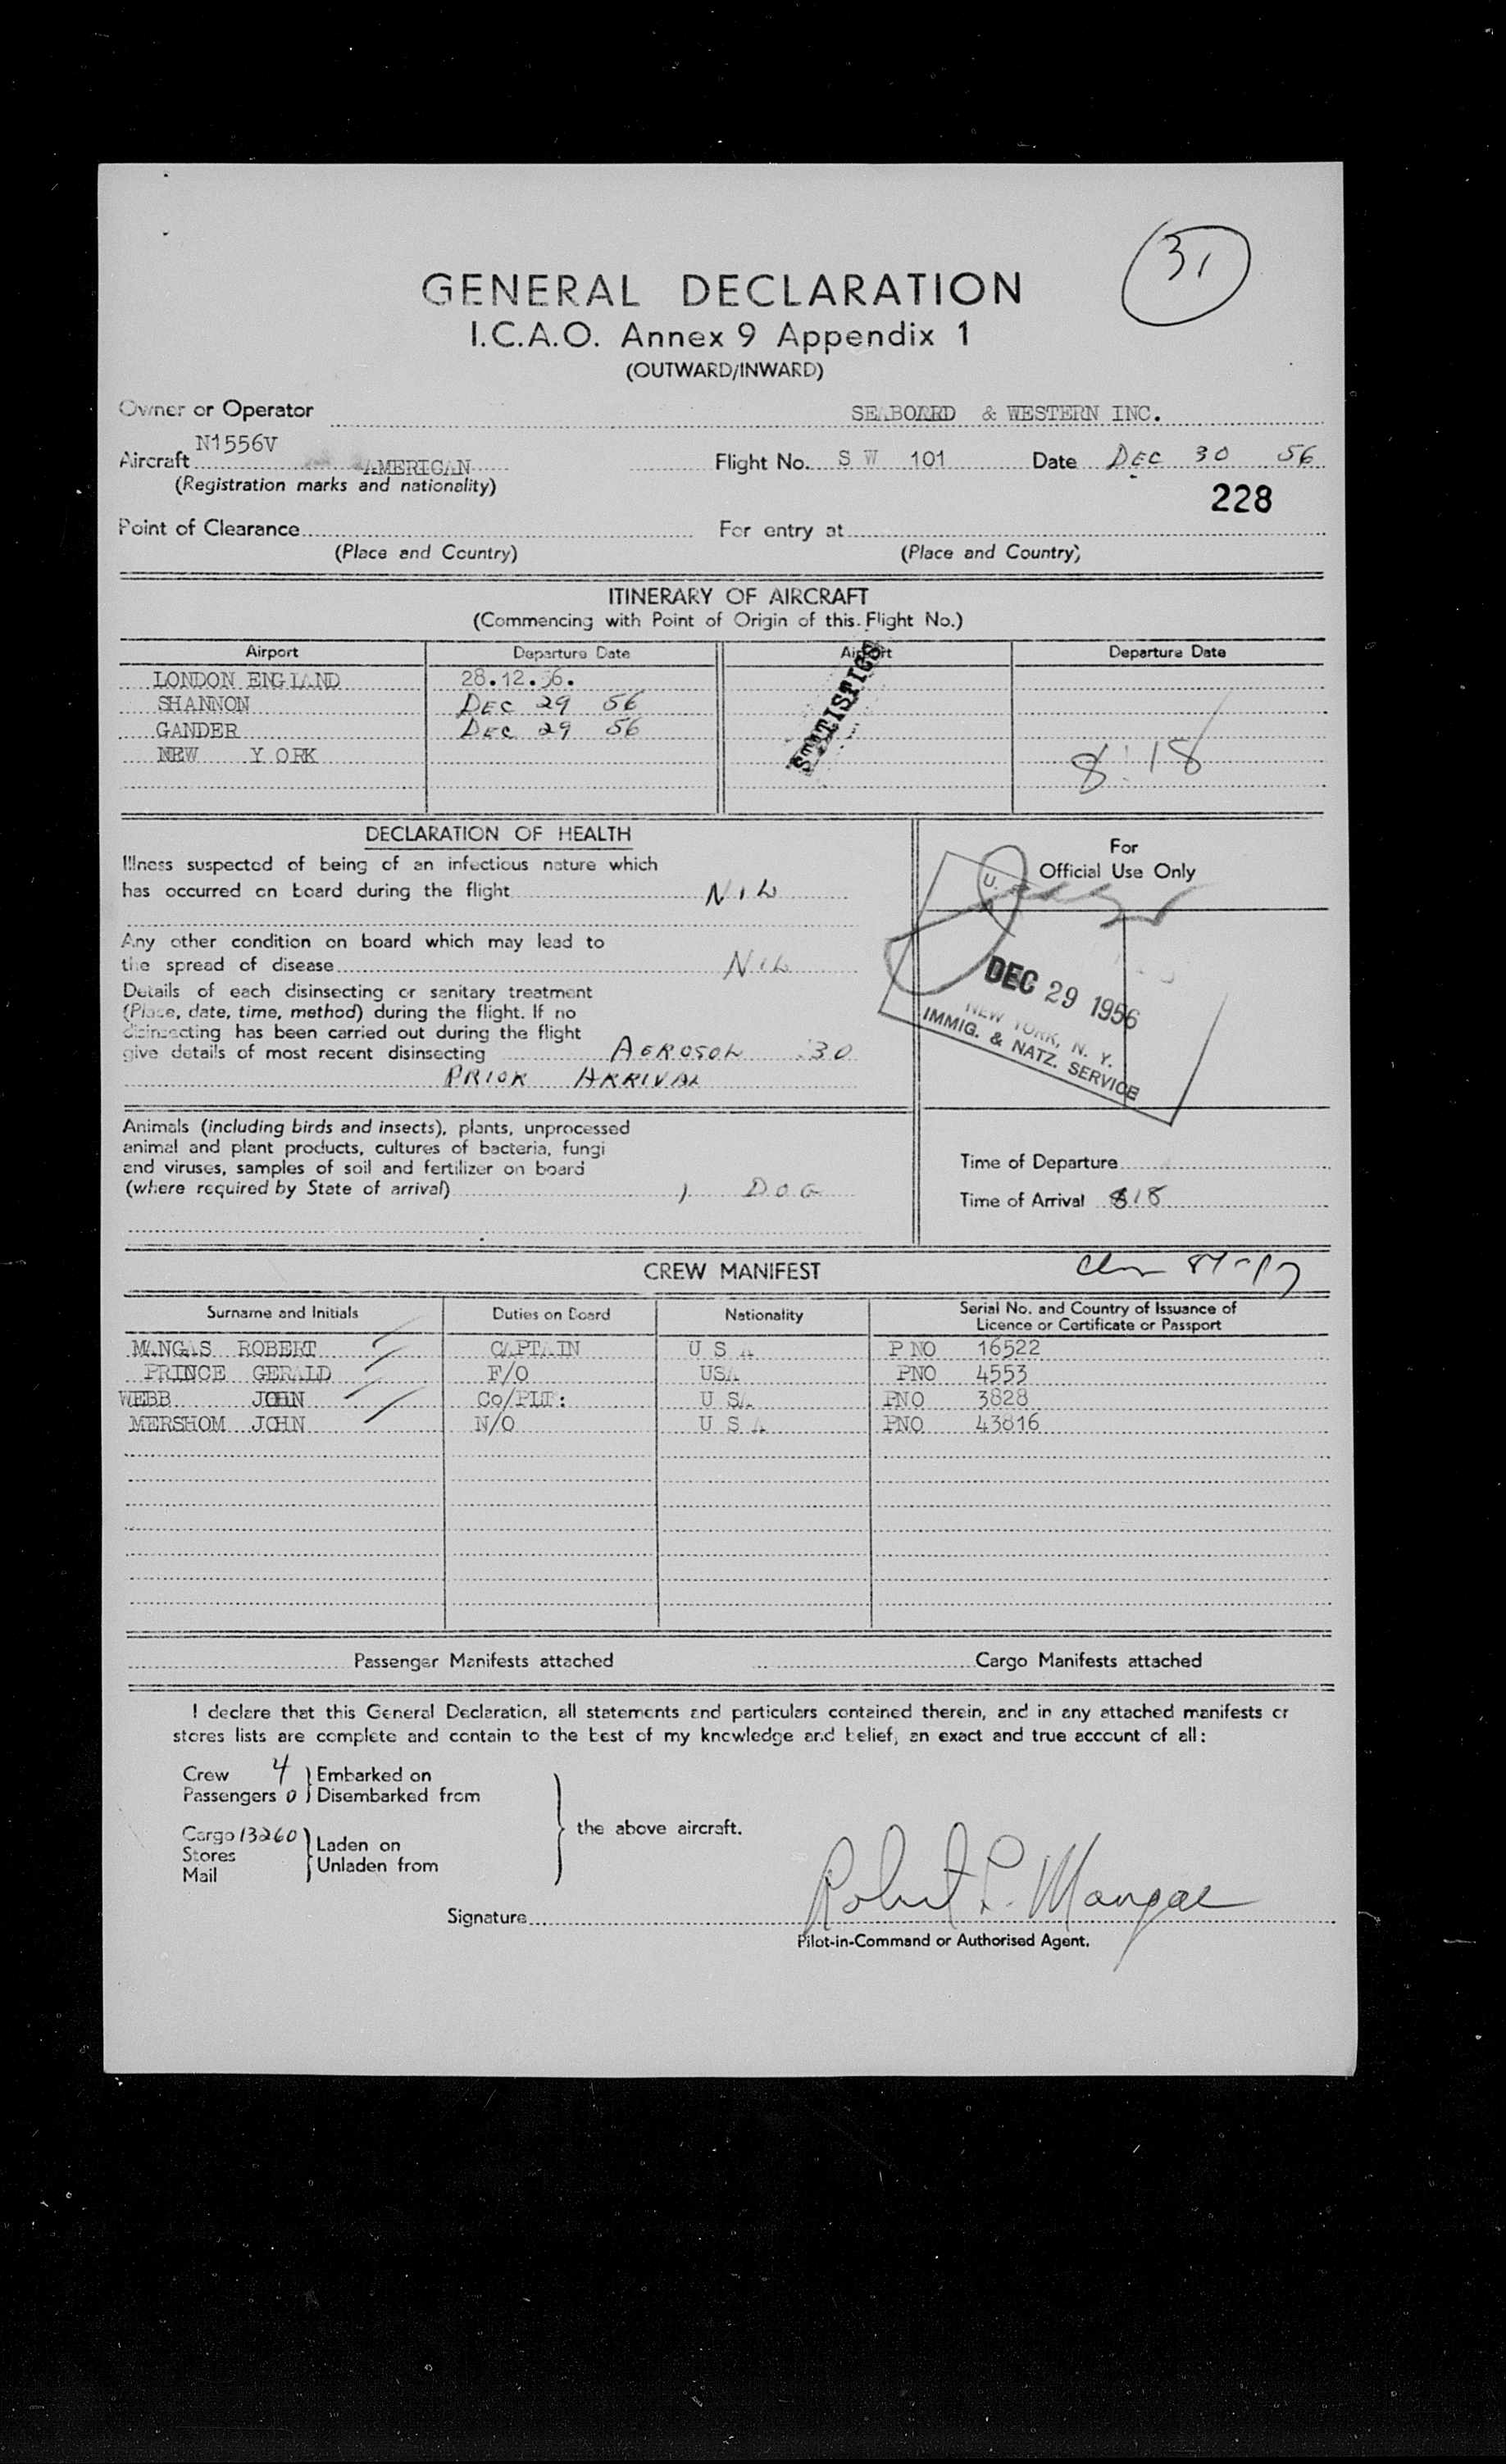 31
GENERAL DECLARATION
I.C.A.O. Annex 9 Appendix 1
(OUTWARD/INWARD)
Owner or Operator SEABOARD & WESTERN INC.
N1556V
Aircraft AMERICAN Flight No. S W 101 Date DEC 30 56
(Registration marks and nationality)
228
Point of Clearance For entry at
(Place and Country) (Place and Country)
ITINERARY OF AIRCRAFT
(Commencing with Point of Origin of this Flight No.)
Airport Departure Date Airport Departure Date
STATISTICS
LONDON ENGLAND 28.12.56.
SHANNON DEC 29 56
GANDER DEC 29 56
NEW Y ORK 8:18
DECLARATION OF HEALTH
For
Official Use Only
Illness suspected of being of an infectious nature which
has occurred on board during the flight NIL
Any other condition on board which may lead to
the spread of disease NIL
Details of each disinsecting or sanitary treatment
(Place, date, time, method) during the flight. If no
disinsecting has been carried out during the flight
give details of most recent disinsecting AEROSOL :30
PRIOR ARRIVAL
U.
DEC 29 1956
NEW YORK, N. Y.
IMMIG. & NATZ. SERVICE
Animals (including birds and insects), plants, unprocessed
animal and plant products, cultures of bacteria, fungi
and viruses, samples of soil and fertilizer on board
(where required by State of arrival) 1 DOG
Time of Departure
Time of Arrival 818
CREW MANIFEST
Surname and Initials Duties on Board Nationality Serial No. and Country of Issuance of
Licence or Certificate or Passport
MANGAS ROBERT CAPTAIN U S A P NO 16522
PRINCE GERALD F/O USA PNO 4553
WEBB JOHN Co/PLT: U SA PNO 3828
MERSHOM JOHN N/O U S A PNO 43816
Passenger Manifests attached Cargo Manifests attached
I declare that this General Declaration, all statements and particulars contained therein, and in any attached manifests or
stores lists are complete and contain to the best of my knowledge and belief, an exact and true account of all:
Crew 4 Embarked on
Passengers 0 Disembarked from
the above aircraft.
Cargo 13260 Laden on
Stores
Mail Unladen from
Signature Robert L. Mangas
Pilot-in-Command or Authorised Agent.